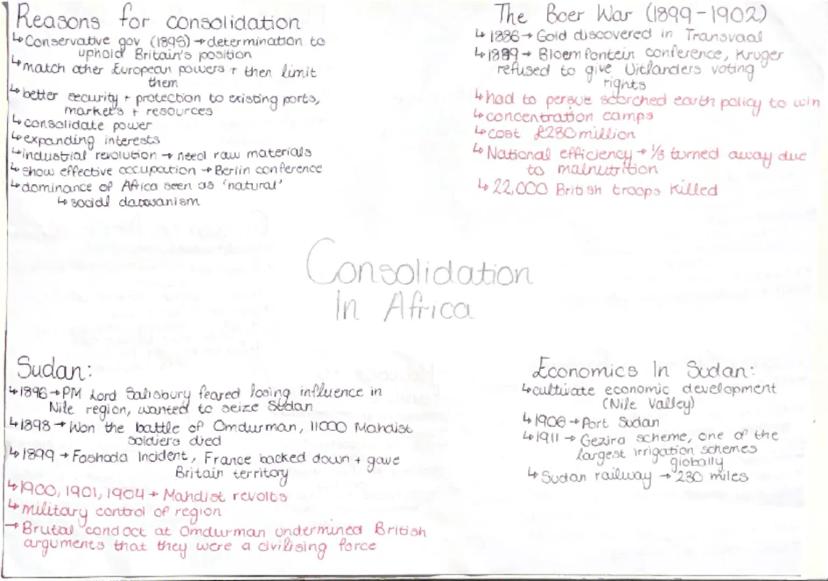 Reasons for consolidation
↳ Conservative gov (1895) → determination to
uphold Britain's position
↳ match other European powers + then limit
them
↳ better security + protection to existing ports,
markets + resources
↳ consolidate power
↳ expanding interests
↳ industrial revolution → need raw materials
↳ show effective occupation → Berlin conference
↳ dominance of Africa seen as 'natural'
↳ social darwanism
The Boer War (1899-1902)
↳ 1886 → Gold discovered in Transvaal
↳ 1899 → Bloemfontein conference, Kruger
refused to give Uitlanders voting
rights
↳ had to persue scorched earth policy to win
↳ concentration camps
↳ cost £230 million
↳ National efficiency → 1/3 turned away due
to malnutrition
↳ 22,000 British troops killed
Consolidation
In Africa
Sudan:
↳ 1896 → PM Lord Salisbury feared losing influence in
Nile region, wanted to seize Sudan
↳ 1898 → Won the battle of Omdurman, 11000 Mahdist
soldiers died
↳ 1899 → Foshoda Incident, France backed down + gave
Britain territory
↳ 1900, 1901, 1904 → Mahdist revolts
↳ military control of region
→ Brutal conduct at Omdurman undermined British
arguments that they were a civilising force
Economics In Sudan:
↳ cultivate economic development
(Nile Valley)
↳ 1906 → Port Sudan
↳ 1911 → Gezira scheme, one of the
largest irrigation schemes
globally
↳ Sudan railway → 230 miles